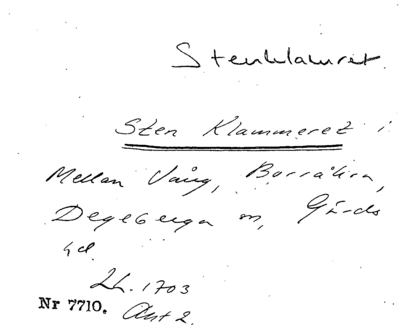 Stenklamret
Sten Klammeret i
Mellan Vång, Borråkra,
Degeberga sn, Gärds
hd.
Lh. 1703
Nr 7710. Akt 2.